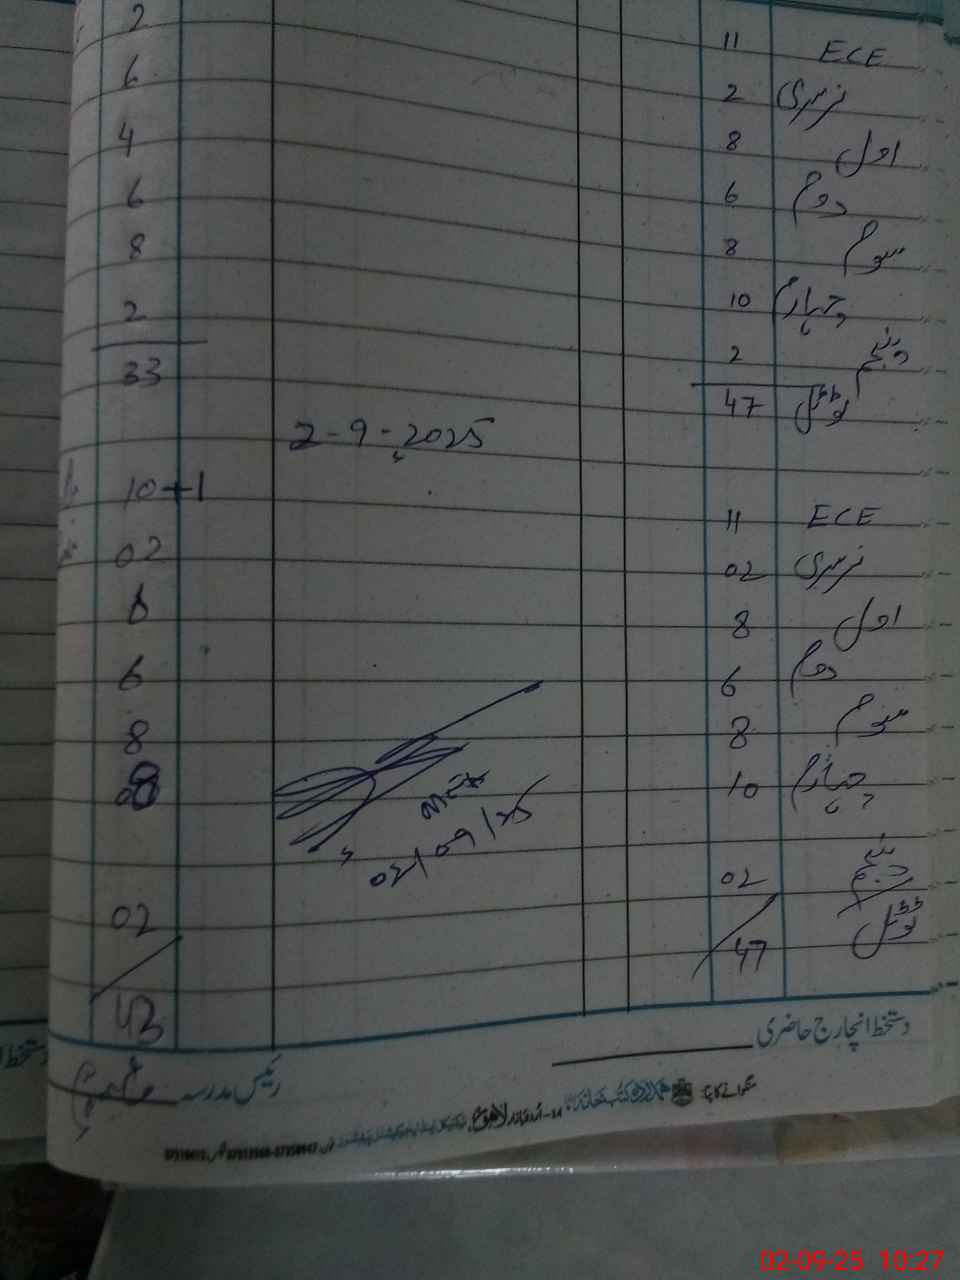 ECE 11 2
نرسری 2 6
اول 8 4
دوم 6 6
سوم 8 8
چہارم 10 2
پنجم 2
ٹوٹل 47 33
2-9-2025
ECE 11 10+1
نرسری 02 02
اول 8 8
دوم 6 6
سوم 8 8
چہارم 10 08
پنجم 02 02
ٹوٹل 47 43
02/09/25
دستخط انچارج حاضری
رئیس مدرسہ
دستخط
02-09-25 10:27